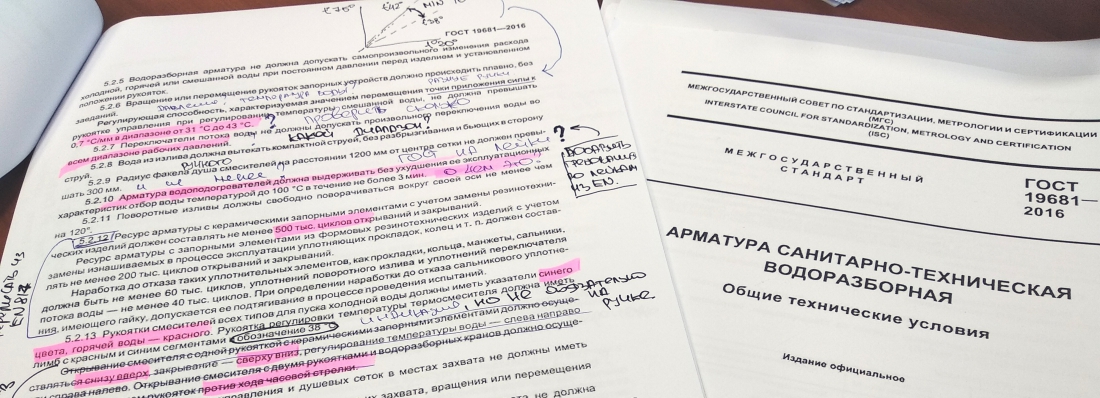 ≤70°
≤42°
MIN 10
≤38°
ГОСТ 19681—2016
5.2.5 Водоразборная арматура не должна допускать самопроизвольного изменения расхода
холодной, горячей или смешанной воды при постоянном давлении перед изделием и установленном
положении рукояток.
5.2.6 Вращение или перемещение рукояток запорных устройств должно происходить плавно, без
заеданий.
давление, температура воды,
Регулирующая способность, характеризуемая значением перемещения точки приложения силы к
рукоятке управления при регулировании температуры смешанной воды, не должна превышать
0,7 °С/мм в диапазоне от 31 °С до 43 °С. ? проверить сколько
5.2.7 Переключатели потока воды не должны допускать произвольного переключения воды во
всем диапазоне рабочих давлений. какой диапазон?
5.2.8 Вода из излива должна вытекать компактной струей, без разбрызгивания и бьющих в сторону
струй.
ручного
ГОСТ на лейки
5.2.9 Радиус факела душа смесителей на расстоянии 1200 мм от центра сетки не должен превы-
шать 300 мм. и не менее
5.2.10 Арматура водоподогревателей должна выдерживать без ухудшения ее эксплуатационных
характеристик отбор воды температурой до 100 °С в течение не более 3 мин. о чем это
?
из EN.
5.2.11 Поворотные изливы должны свободно поворачиваться вокруг своей оси не менее чем
на 120°.
5.2.12 Ресурс арматуры с керамическими запорными элементами с учетом замены резинотехни-
ческих изделий должен составлять не менее 500 тыс. циклов открываний и закрываний.
Ресурс арматуры с запорными элементами из формовых резинотехнических изделий с учетом
замены изнашиваемых в процессе эксплуатации уплотняющих прокладок, колец и т. п. должен состав-
лять не менее 200 тыс. циклов открываний и закрываний.
Наработка до отказа таких уплотнительных элементов, как прокладки, кольца, манжеты, сальники,
должна быть не менее 60 тыс. циклов, уплотнений поворотного излива и уплотнений переключателя
потока воды — не менее 40 тыс. циклов. При определении наработки до отказа сальникового уплотне-
ния, имеющего гайку, допускается ее подтягивание в процессе проведения испытаний.
5.2.13 Рукоятки смесителей всех типов для пуска холодной воды должны иметь указатели синего
цвета, горячей воды — красного. Рукоятка регулировки температуры термосмесителя должна иметь
лимб с красным и синим сегментами и обозначение 38 °С. индикация, но не обязательно на ручке.
Открывание смесителя с одной рукояткой с керамическими запорными элементами должно осуще-
ствляться снизу вверх, закрывание — сверху вниз, регулирование температуры воды — слева направо
и справа налево. Открывание смесителя с двумя рукоятками и водоразборных кранов должно осуще-
рукояток против хода часовой стрелки.
управления и душевых сеток в местах захвата не должны иметь
захвата, вращения или перемещения
не должна
МЕЖГОСУДАРСТВЕННЫЙ СОВЕТ ПО СТАНДАРТИЗАЦИИ, МЕТРОЛОГИИ И СЕРТИФИКАЦИИ
(МГС)
INTERSTATE COUNCIL FOR STANDARDIZATION, METROLOGY AND CERTIFICATION
(ISC)
МЕЖГОСУДАРСТВЕННЫЙ
СТАНДАРТ
ГОСТ
19681—
2016
АРМАТУРА САНИТАРНО-ТЕХНИЧЕСКАЯ
ВОДОРАЗБОРНАЯ
Общие технические условия
Издание официальное